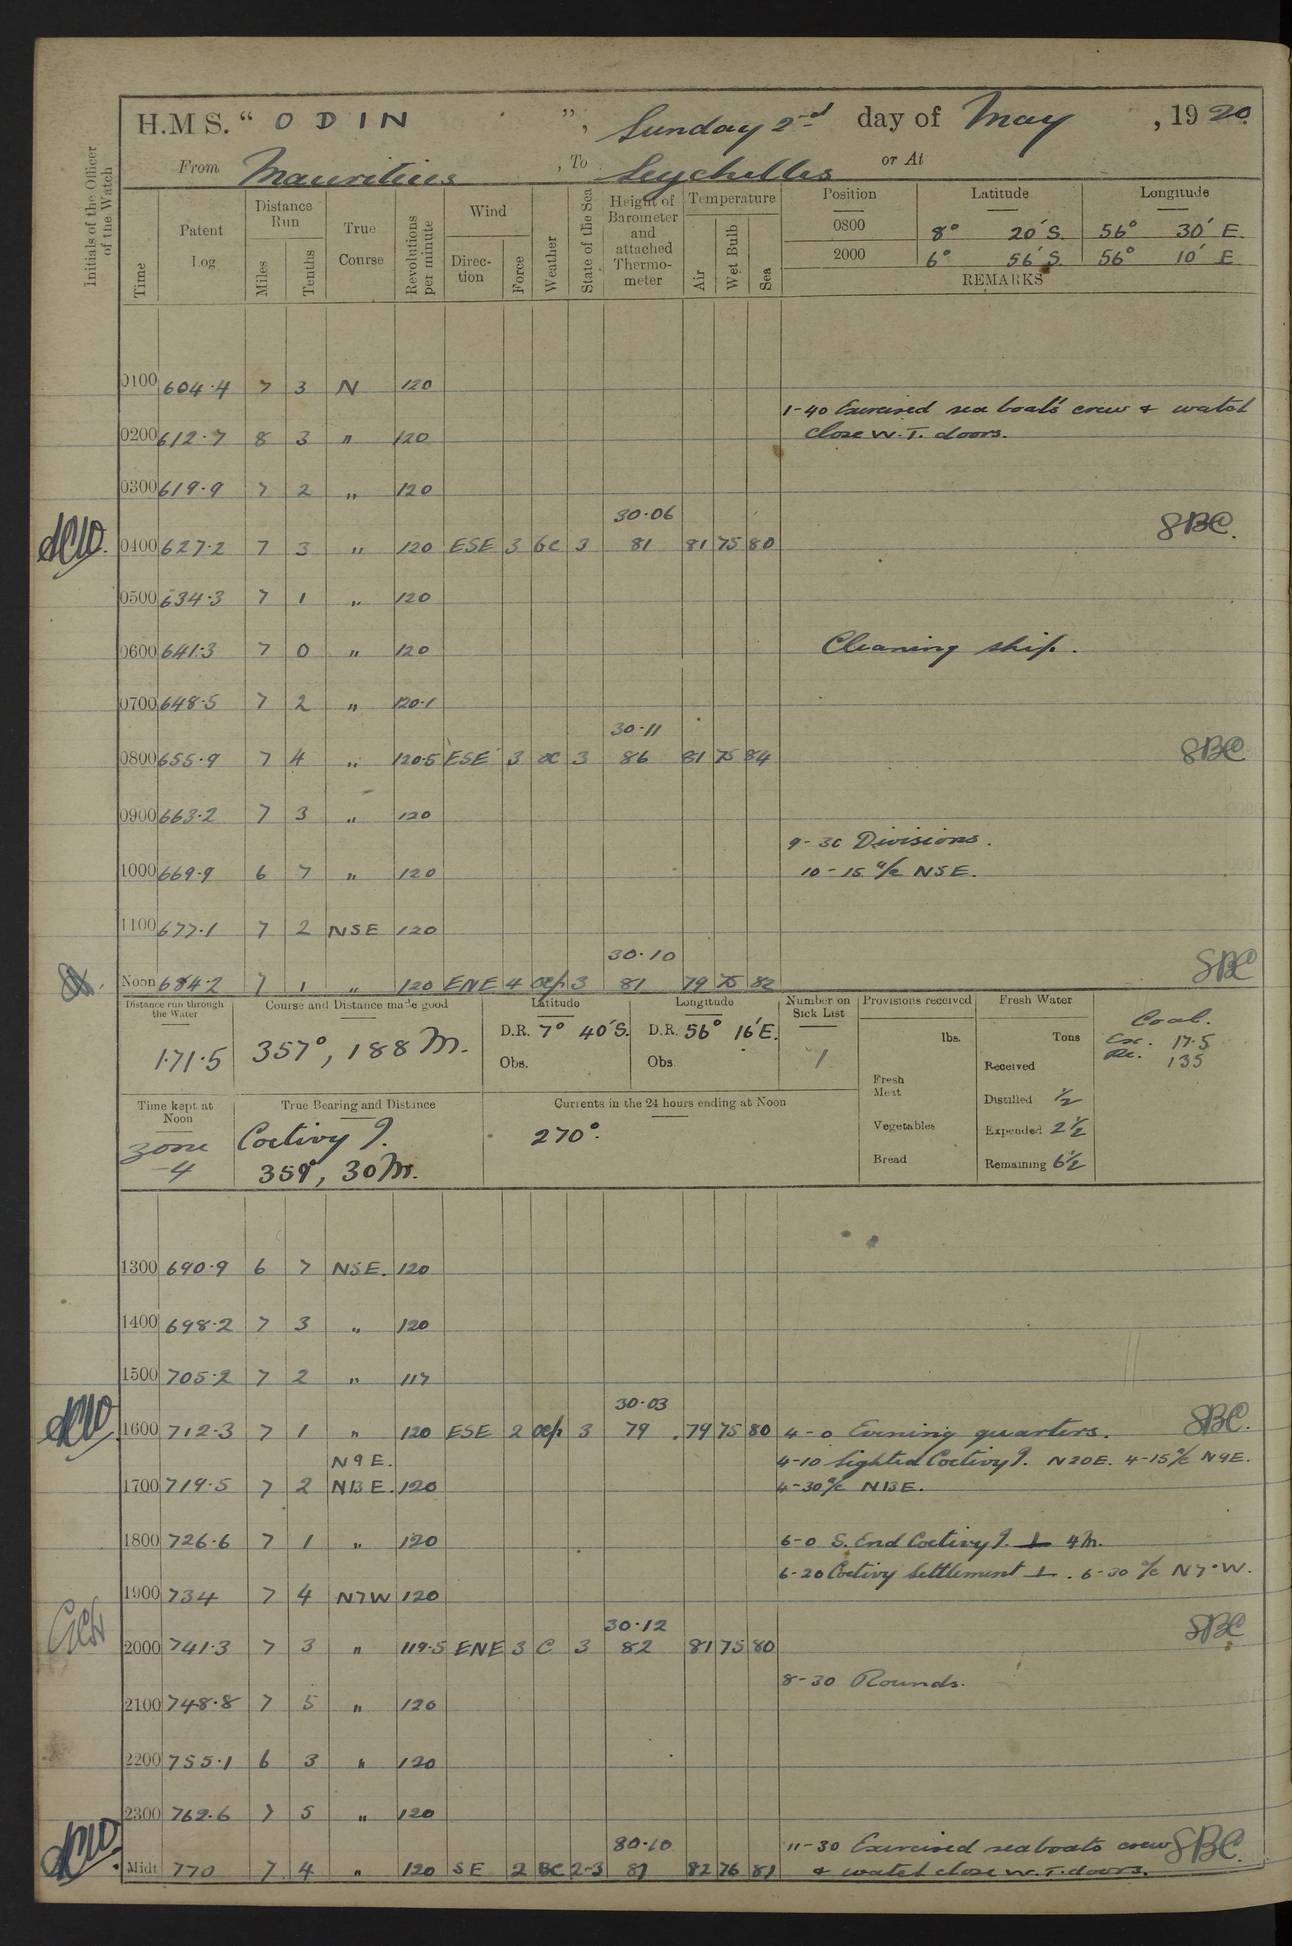 H.M S. “ ODIN ”, Sunday 2nd day of May , 1920.
From Mauritius , To Seychelles or At
Initials of the Officer of the Watch
Time
Patent Log
Distance Run
Miles
Tenths
True Course
Revolutions per minute
Wind
Direc-tion
Force
Weather
State of the Sea
Height of Barometer and attached Thermo-meter
Temperature
Air
Wet Bulb
Sea
Position Latitude Longitude
0800 8° 20' S. 56° 30' E.
2000 6° 56' S. 56° 10' E
REMARKS
0100 604.4 7 3 N 120
1-40 Exercised sea boat's crew & watch
0200 612.7 8 3 " 120 close W.T. doors.
0300 619.9 7 2 " 120
30.06 SBC.
0400 627.2 7 3 " 120 ESE 3 bc 3 81 81 75 80
0500 634.3 7 1 " 120
0600 641.3 7 0 " 120 Cleaning ship.
0700 648.5 7 2 " 120.1
30.11
0800 655.9 7 4 " 120.5 ESE 3 oc 3 86 81 75 84 SBC
0900 663.2 7 3 " 120
9-30 Divisions.
1000 669.9 6 7 " 120 10-15 a/c N5E.
1100 677.1 7 2 N5E 120
30.10 SBC
Noon 684.2 7 1 " 120 ENE 4 ocp 3 81 79 75 82
Distance run through the Water
171.5
Course and Distance made good
357°, 188 M.
Latitude
D.R. 7° 40' S.
Obs.
Longitude
D.R. 56° 16' E.
Obs.
Number on Sick List
1
Provisions received
lbs.
Fresh Meat
Vegetables
Bread
Fresh Water
Tons
Received
Distilled ½
Expended 2½
Remaining 6½
Coal.
Ex. 17.5
Re. 135
Time kept at Noon
Zone
-4
True Bearing and Distance
Coetivy I.
359°, 30 M.
Currents in the 24 hours ending at Noon
270°.
1300 690.9 6 7 N5E. 120
1400 698.2 7 3 " 120
1500 705.2 7 2 " 117
30.03 SBC.
1600 712.3 7 1 " 120 ESE 2 ocp 3 79 79 75 80 4-0 Evening quarters.
N9E. 4-10 Sighted Coetivy I. N20E. 4-15 a/c N9E.
1700 719.5 7 2 N13E. 120 4-30 a/c N13E.
1800 726.6 7 1 " 120 6-0 S. End Coetivy I. ⊥ 4 M.
6-20 Coetivy Settlement ⊥. 6-30 a/c N7°W.
1900 734 7 4 N7W 120
30.12 SBC
2000 741.3 7 3 " 119.5 ENE 3 C 3 82 81 75 80
8-30 Rounds.
2100 748.8 7 5 " 120
2200 755.1 6 3 " 120
2300 762.6 7 5 " 120
30.10 11-30 Exercised seaboats crew SBC.
Midt 770 7 4 " 120 SE 2 BC 2-3 81 82 76 81 & watch close W.T. doors.